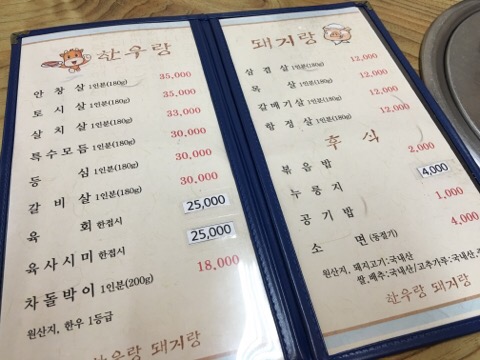 한우랑
안 창 살 1인분(180g) 35,000
토 시 살 1인분(180g) 35,000
살 치 살 1인분(180g) 33,000
특수모듬 1인분(180g) 30,000
등 심 1인분(180g) 30,000
갈 비 살 1인분(180g) 30,000
육 회 한접시 25,000
육사시미 한접시 25,000
차돌박이 1인분(200g) 18,000
원산지, 한우 1등급
한우랑 돼지랑
돼지랑
삼 겹 살 1인분(180g) 12,000
목 살 1인분(180g) 12,000
갈매기살 1인분(180g) 12,000
항 정 살 1인분(180g) 12,000
후 식
볶 음 밥 2,000
누 룽 지 4,000
공 기 밥 1,000
소 면 (동절기) 4,000
원산지, 돼지고기:국내산
쌀,배추:국내산/고춧가루:국내산,
한우랑 돼지랑